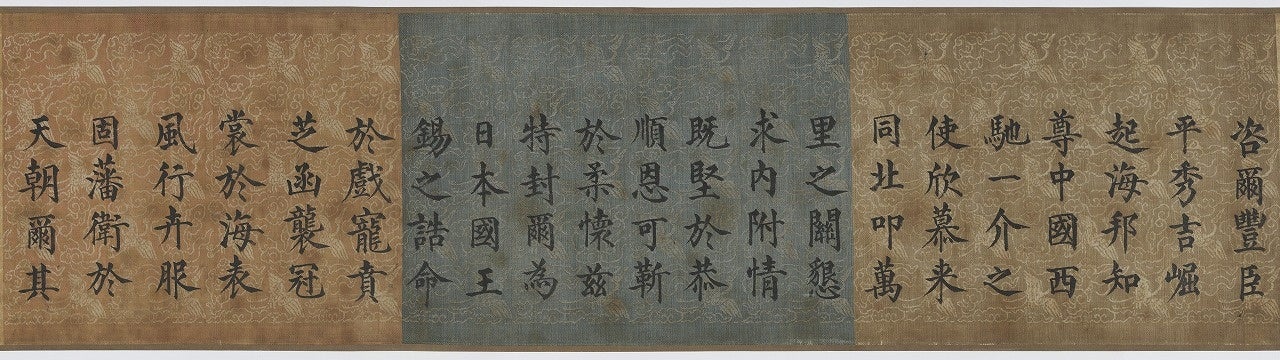 咨爾豐臣
平秀吉崛
起海邦知
尊中國西
馳一介之
使欣慕来
同北叩萬
里之關懇
求内附情
既堅於恭
順恩可靳
於柔懷茲
特封爾為
日本國王
錫之誥命
於戲寵賁
芝函襲冠
裳於海表
風行卉服
固藩衛於
天朝爾其